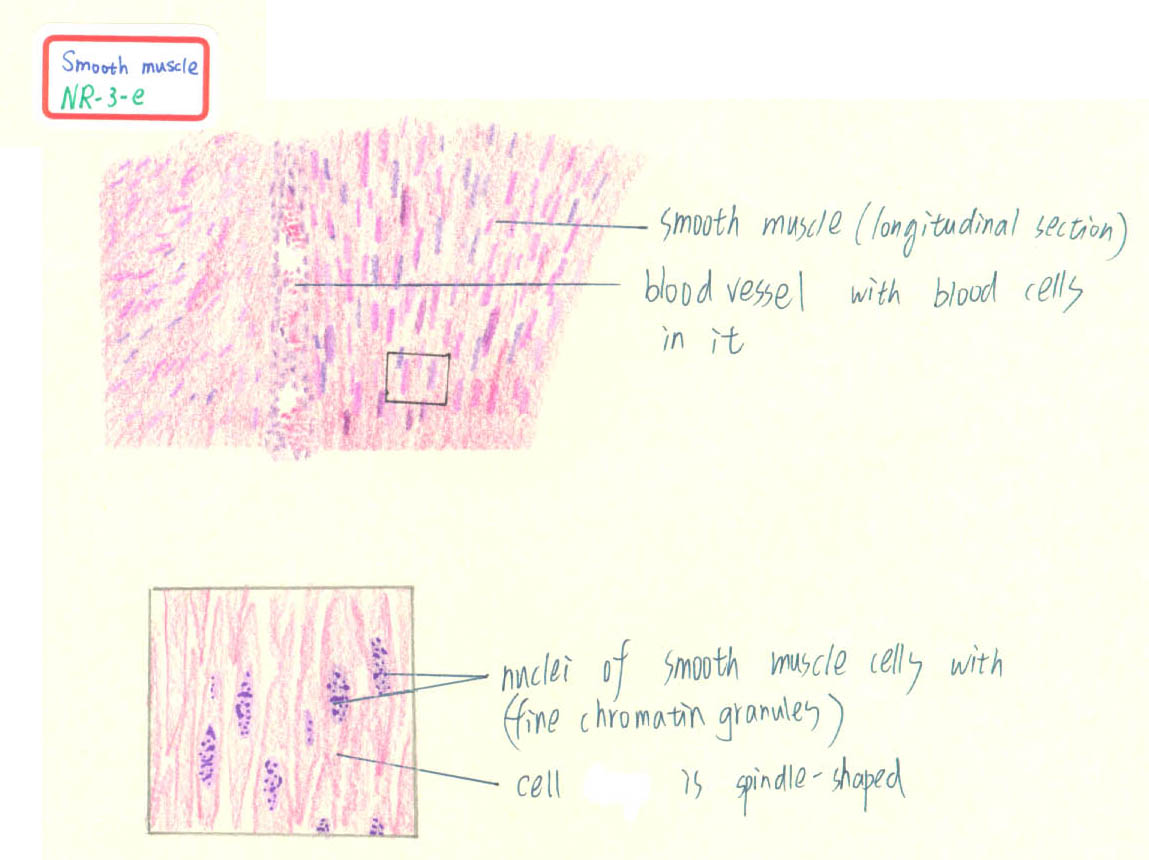 Smooth muscle
NR-3-e
smooth muscle (longitudinal section)
blood vessel with blood cells
in it
nuclei of smooth muscle cells with
(fine chromatin granules)
cell is spindle-shaped